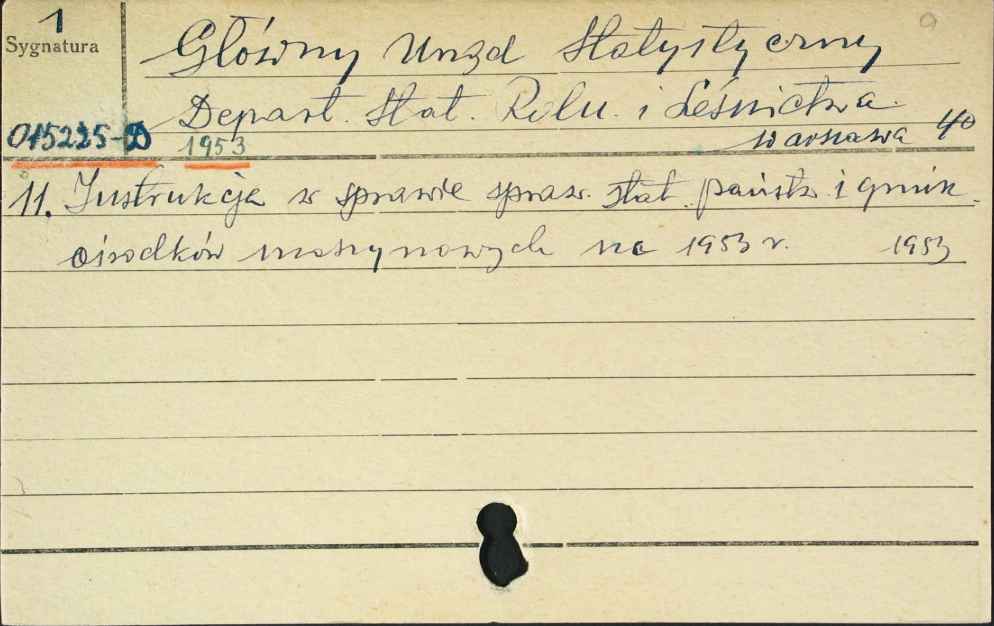 1
Sygnatura
Główny Urząd Statystyczny
Depart. Stat. Roln. i Leśnictwa.
015225-D 1953 Warszawa 40
11. Instrukcja w sprawie spraw. stat. państw. i gmin.
ośrodków maszynowych na 1953 r. 1953